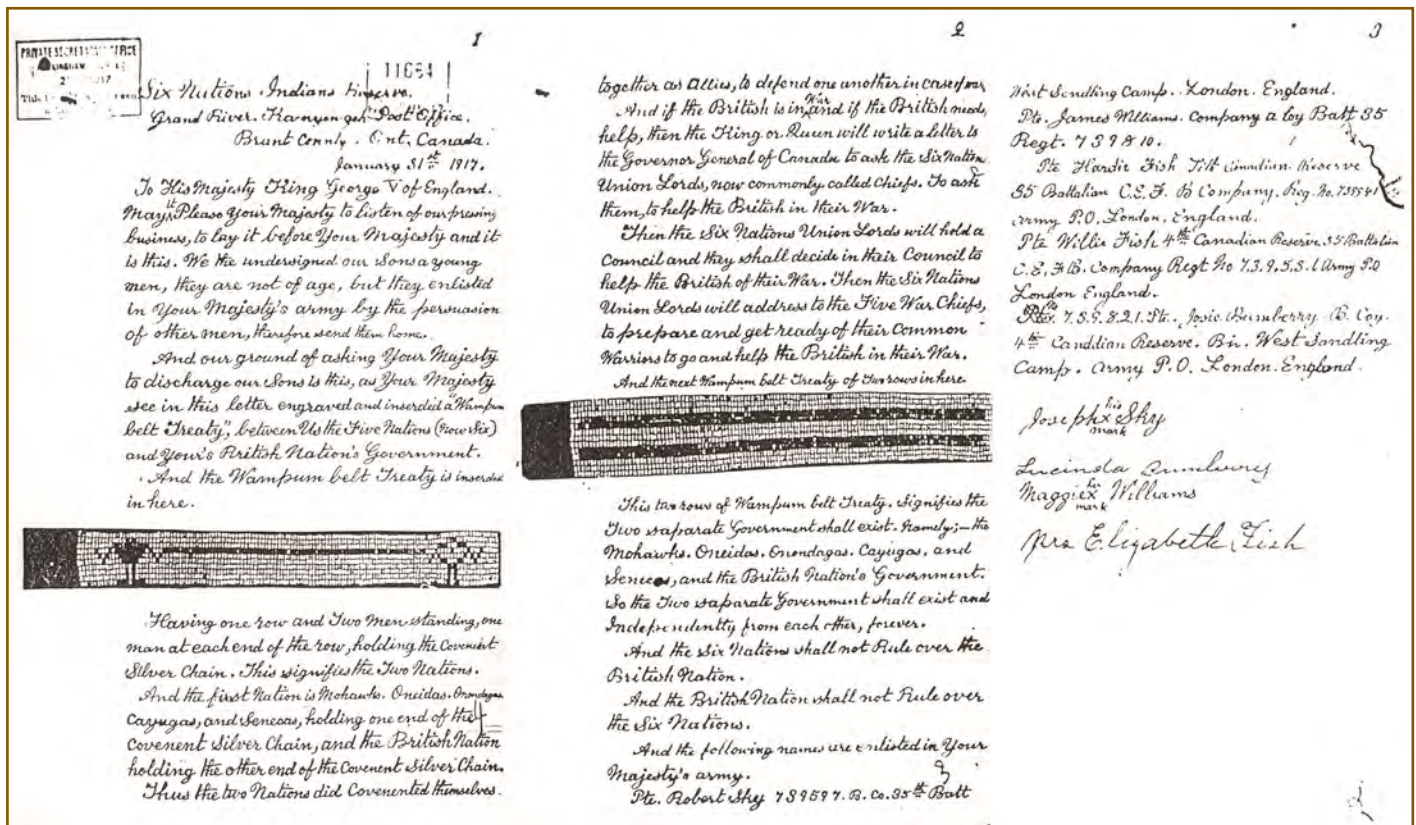 1
PRIVATE SECRETARY'S OFFICE
11684
Six Nations Indians Reserve.
Grand River. Kanyengeh Post Office.
Brant County. Ont. Canada.
January 31st 1917.
To His Majesty King George V of England.
May it Please Your Majesty to listen of our pressing
business, to lay it before Your Majesty and it
is this. We the undersigned our Sons a young
men, they are not of age, but they enlisted
in Your Majesty's army by the persuasion
of other men, therefore send them home.
And our ground of asking Your Majesty
to discharge our Sons is this, as Your Majesty
see in this letter engraved and inserded a "Wampum
belt Treaty", between Us the Five Nations (now Six)
and Your's British Nation's Government.
And the Wampum belt Treaty is inserded
in here.
Having one row and Two Men standing, one
man at each end of the row, holding the Covenent
Silver Chain. This signifies the Two Nations.
And the first Nation is Mohawks. Oneidas. Onondagas
Cayugas, and Senecas, holding one end of the
Covenent Silver Chain, and the British Nation
holding the other end of the Covenent Silver Chain.
Thus the two Nations did Covenented themselves.
2
together as Allies, to defend one another in case of war
And if the British is in War and if the British needs
help, then the King or Queen will write a letter to
the Governor General of Canada to ask the Six Nation
Union Lords, now commonly called Chiefs. To ask
them, to help the British in their War.
Then the Six Nations Union Lords will hold a
Council and they shall decide in their Council to
help the British of their War. Then the Six Nations
Union Lords will address to the Five War Chiefs,
to prepare and get ready of their Common
Warriors to go and help the British in their War.
And the next Wampum belt Treaty of Two rows in here.
This two rows of Wampum belt Treaty. Signifies the
Two saparate Government shall exist. Namely;— the
Mohawks. Oneidas. Onondagas. Cayugas, and
Senecas, and the British Nation's Government.
So the Two saparate Government shall exist and
Independentty from each other, forever.
And the Six Nations shall not Rule over the
British Nation.
And the British Nation shall not Rule over
the Six Nations.
And the following names are enlisted in Your
Majesty's army.
Pte. Robert Sky 739597. B. Co. 35th Batt
3
West Sendling Camp. London. England.
Pte. James Williams. Company a Coy Batt 35
Regt. 739810.
Pte Hardie Fish Canadian Reserve
35 Battalian C.E.F. B Company. Reg. No.
Army P.O. London. England.
Pte Willie Fish 4th Canadian Reserve. 35 Battalion
C.E.F. B. Company Regt No 7.3.9.5.5.1 Army P.O
London England.
7.3.9.8.2.1. Pte. Josie Bumberry B. Coy.
4th Canddian Reserve. Bn. West Sandling
Camp. Army P.O. London. England.
Joseph his x mark Sky
Lucinda Bumberry
Maggie her x mark Williams
Mrs Elizabeth Fish